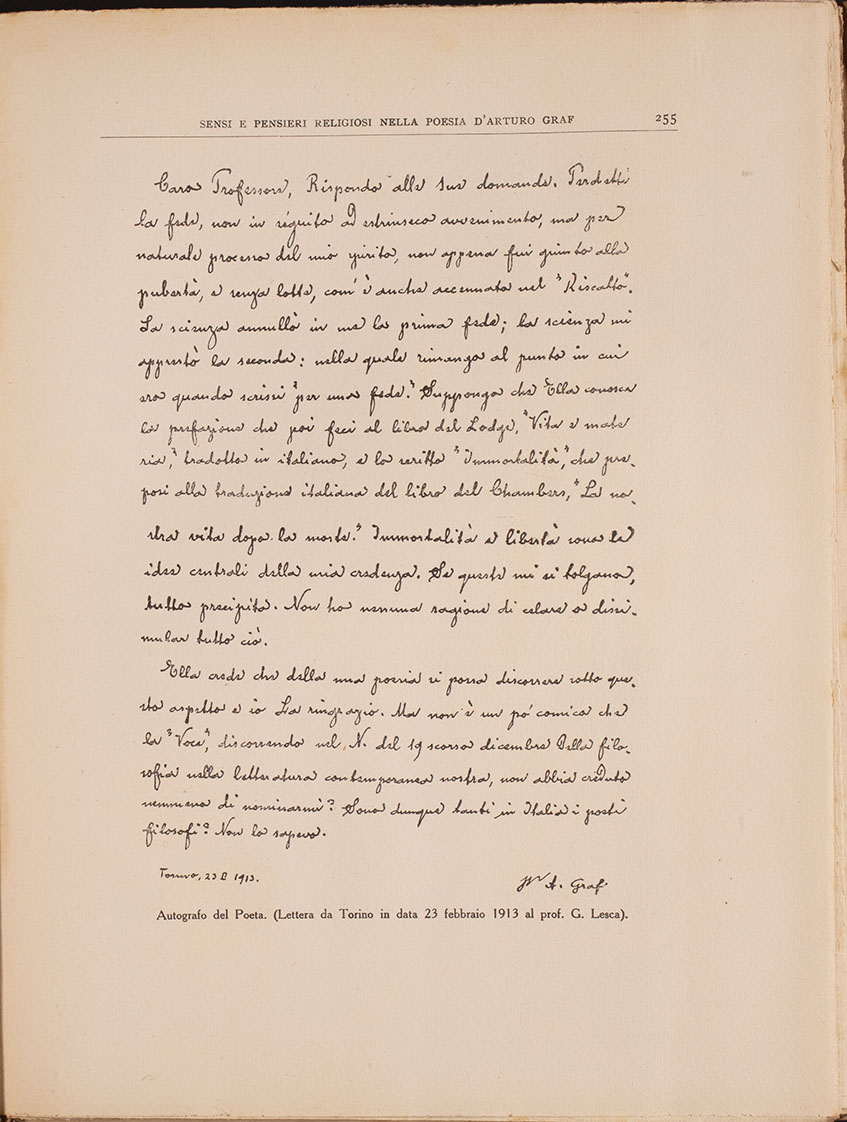 SENSI E PENSIERI RELIGIOSI NELLA POESIA D'ARTURO GRAF 255
Caro Professore, Rispondo alle Sue domande. Perdetti
la fede, non in séguito ad estrinseco avvenimento, ma per
naturale processo del mio spirito, non appena fui giunto alla
pubertà, e senza lotte, com'è anche accennato nel "Riscatto".
La scienza annullò in me la prima fede; la scienza mi
apprestò la seconda: nella quale rimango al punto in cui
ero quando scrissi "per una fede." Suppongo che Ella conosca
la prefazione che poi feci al libro del Lodge, "Vita e mate
ria," tradotto in italiano, e lo scritto "Immortalità," che pre-
posi alla traduzione italiana del libro del Chambers, "La no-
stra vita dopo la morte." Immortalità e libertà sono le
idee centrali della mia credenza. Se queste mi si tolgano,
tutto precipita. Non ho nessuna ragione di celare o dissi-
mular tutto ciò.
Ella crede che della mia poesia si possa discorrere sotto que-
sto aspetto e io La ringrazio. Ma non è un po' comico che
la "Voce", discorrendo nel N. del 19 scorso dicembre della filo-
sofia nella letteratura contemporanea nostra, non abbia creduto
nemmeno di nominarmi? Sono dunque tanti in Italia i poeti
filosofi? Non lo sapevo.
Torino, 23 2 1913.
A. Graf
Autografo del Poeta. (Lettera da Torino in data 23 febbraio 1913 al prof. G. Lesca).